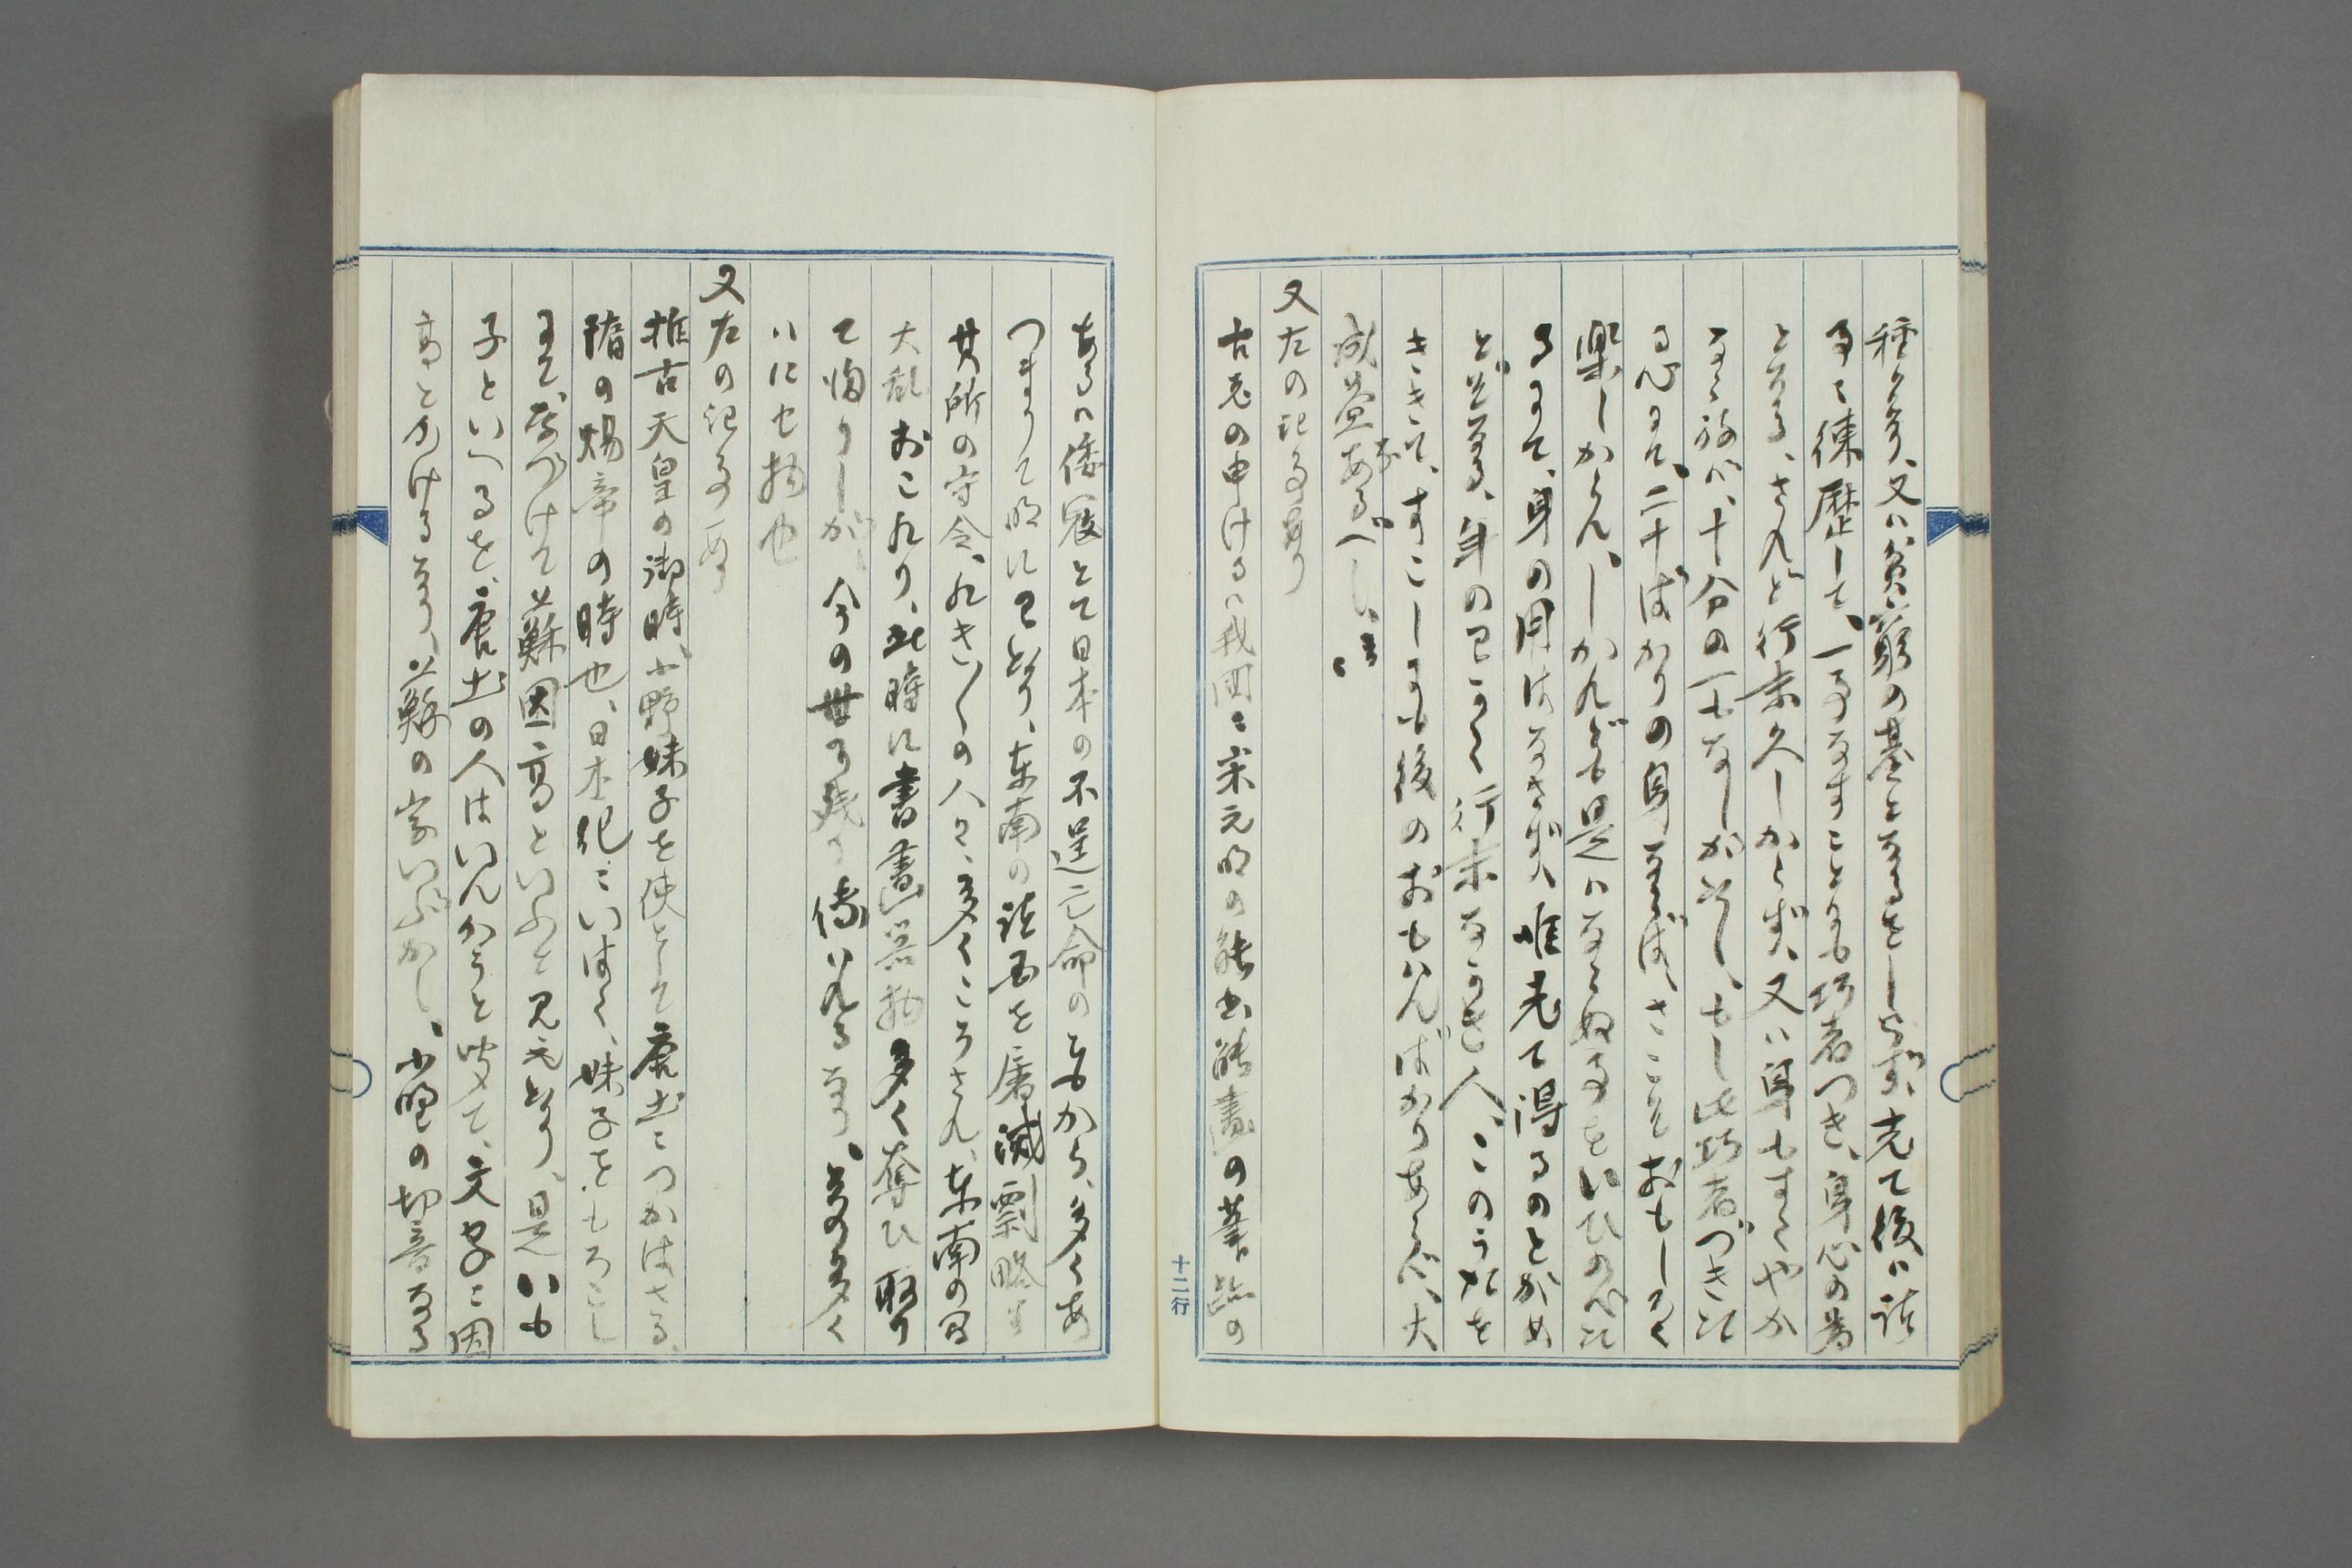 種多久、又ハ貧窮の基となるをしらず、老て後ハ諸
事ニ練歴して、一事なすことにも巧者つき、身心の為
となる、されど行末久しからず、又ハ身もすくやか
なる故ハ、十分の一もなしがたし、もし此巧者づきたる
心にて、二十ばかりの身ならば、さこそおもしろく
楽しからん、しかれども是ハならぬ事をいひのべた
るまで、身の用はなさず、唯老て得るのとがめ
どぞなる、年のわかく行末ながき人、このうたを
ききて、すこしにても後のおもハんばかりあらバ、大
成益あるべし
又左の記事あり
古老の申けるハ我国ニ宋元明の能書能畫の筆蹟の
十二行
あるハ倭寇とて日本の不逞亡命のともがら、多くあ
つまりて明にわたり、東南の諸县を屠滅剽略す
其所の守令、れき〳〵の人々、多くころされ、東南の国
大乱おこれり、此時に書畫器物多く奪ひ取り
て帰りしが、今の世に残り傳ハれるなり、
ハにせ物也
又左の記事あり
推古天皇の御時、小野妹子を使として唐土ニつかはさる、
隋の煬帝の時也、日本紀ニいはく、妹子をもろこし
にて、なづけて蘇因高といふと見えたり、是いも
子といへるを、唐土の人はいんかうと聞て、文字ニ因
高とかけるなり、蘇の字いぶかし、小野の切音なる